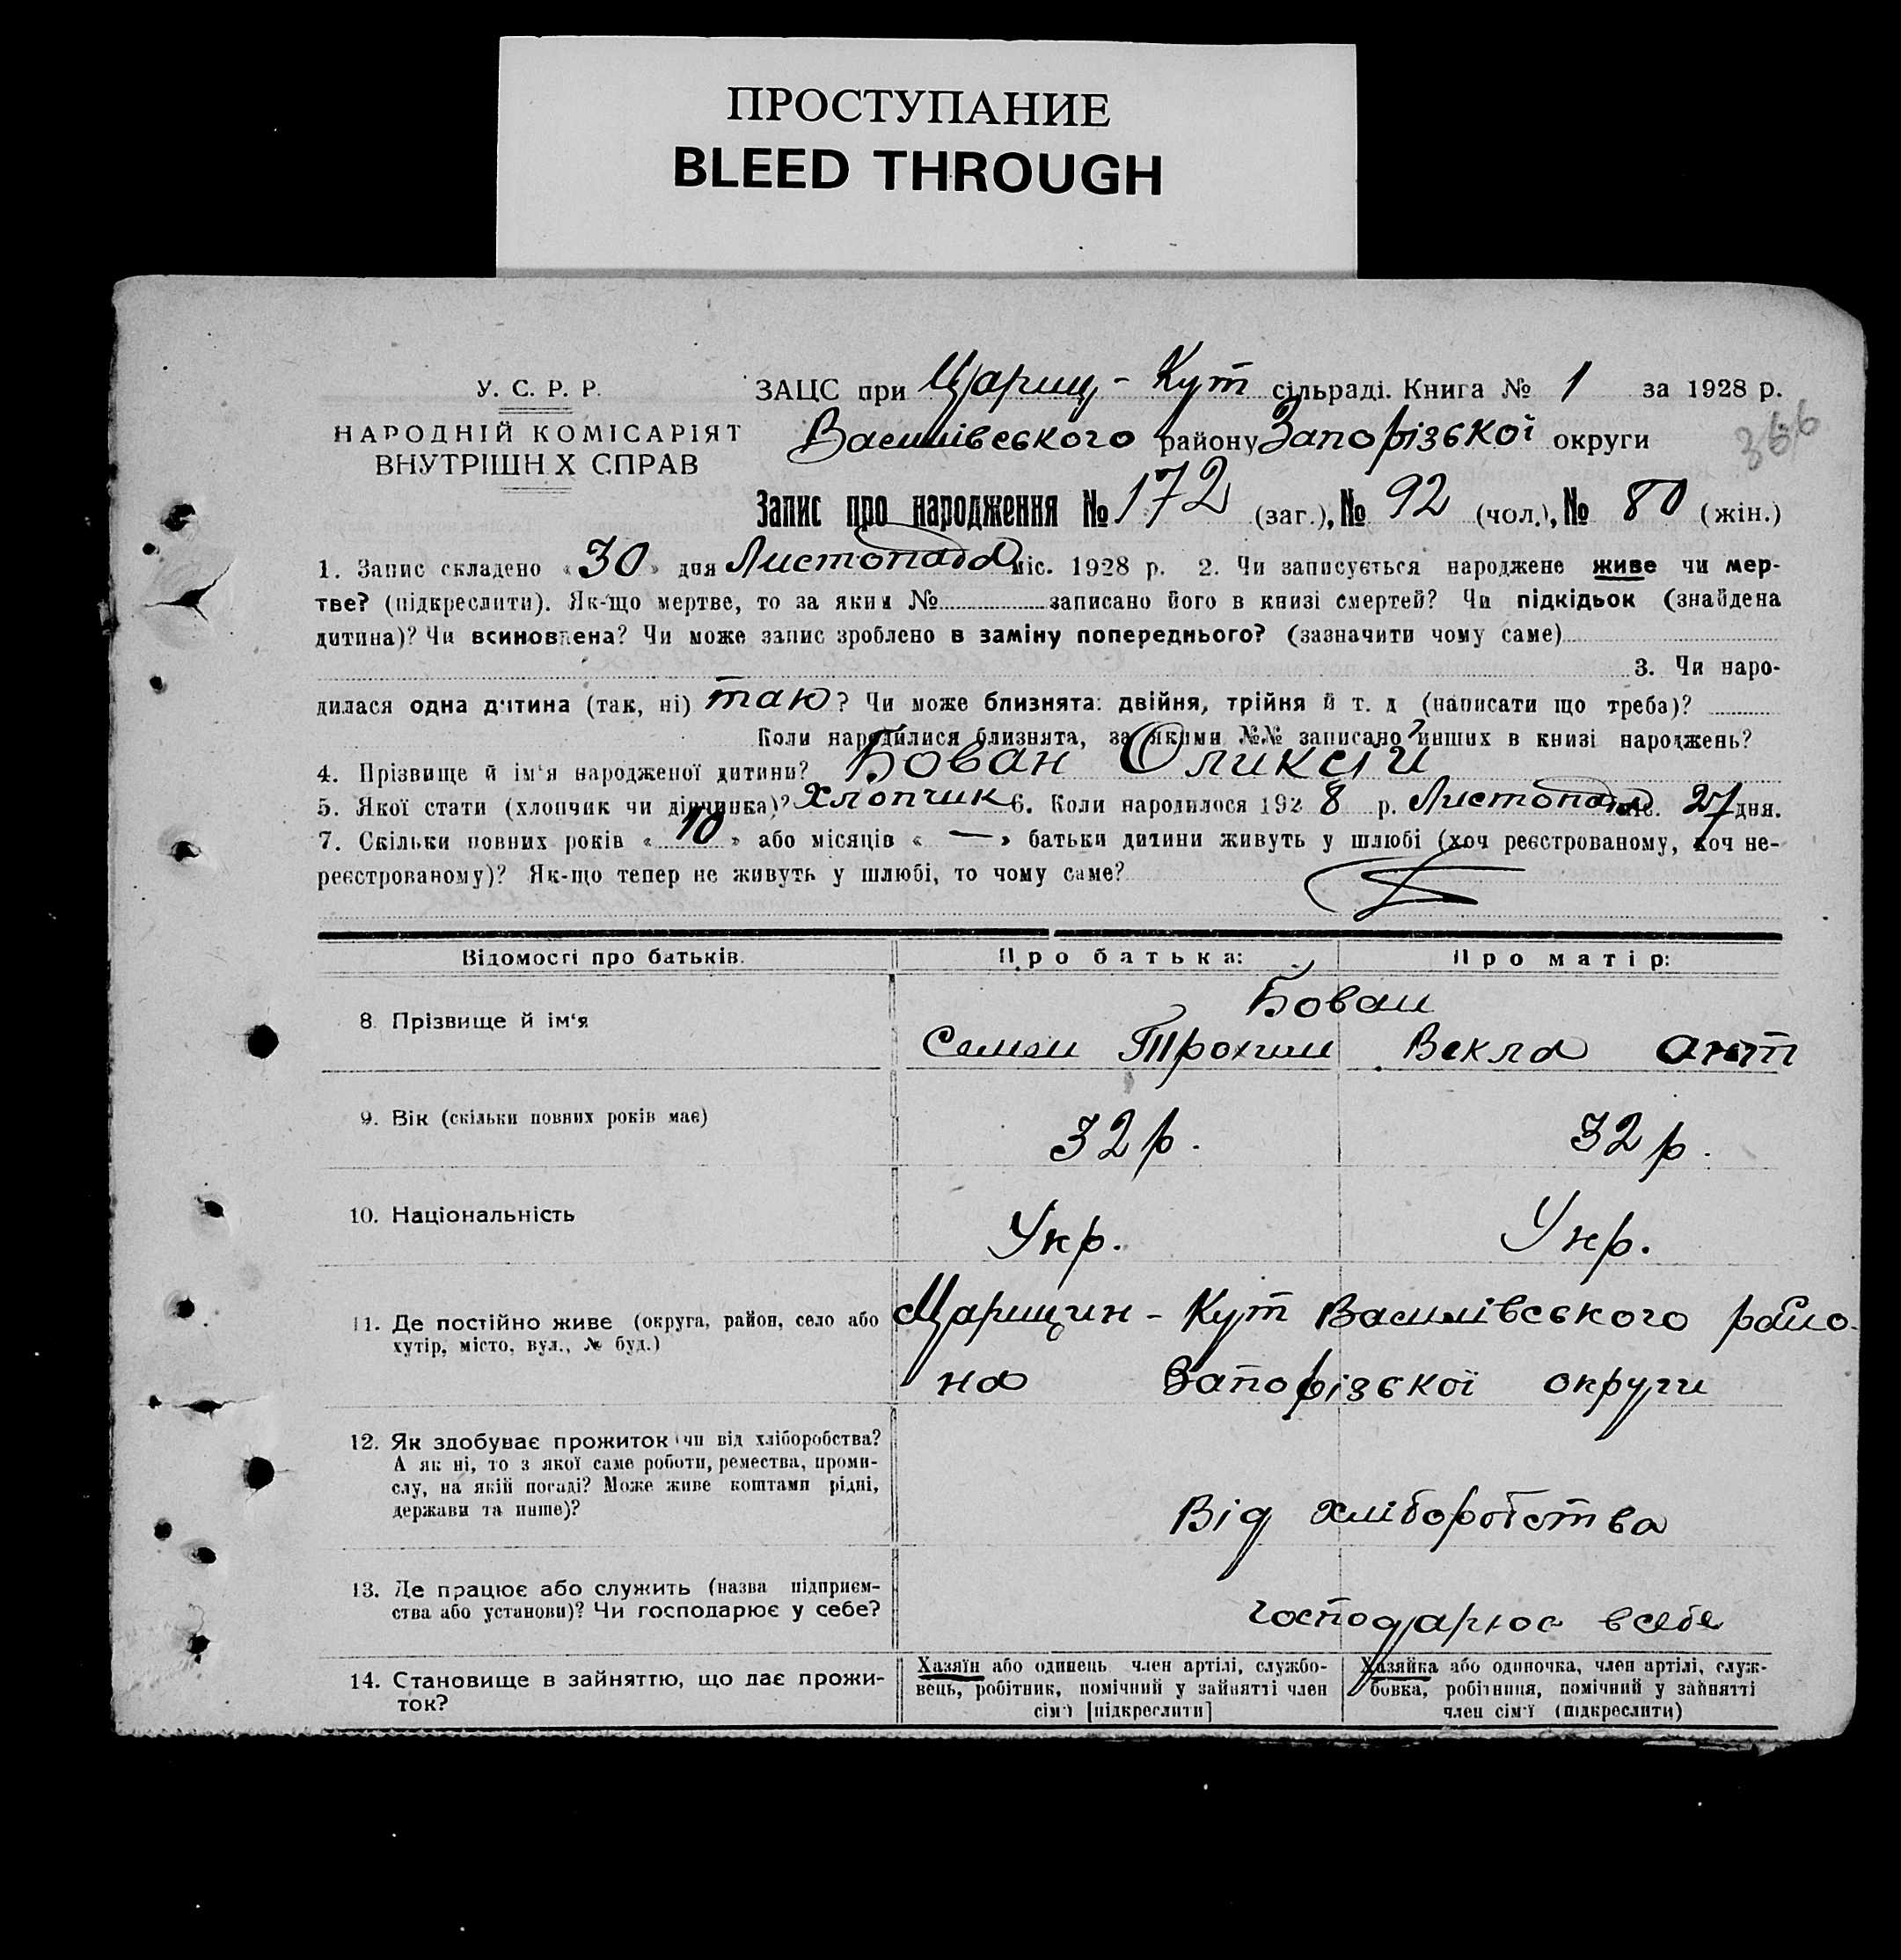 ПРОСТУПАНИЕ
BLEED THROUGH
У. С. Р. Р.
НАРОДНІЙ КОМІСАРІЯТ
ВНУТРІШН Х СПРАВ
ЗАЦС при Царищ-Кут сільраді. Книга № 1 за 1928 р.
Василівського району Запорізької округи
366
Запис про народження № 172 (заг.), № 92 (чол.), № 80 (жін.)
1. Запис складено «30» дня Листопада міс. 1928 р. 2. Чи записується народжене живе чи мер-
тве? (підкреслити). Як-що мертве, то за яким № записано його в книзі смертей? Чи підкідьок (знайдена
дитина)? Чи всиновлена? Чи може запис зроблено в заміну попереднього? (зазначити чому саме)
3. Чи наро-
дилася одна дитина (так, ні) так? Чи може близнята: двійня, трійня й т. д (написати що треба)?
Коли народилися близнята, за якими №№ записано инших в книзі народжень?
4. Прізвище й ім'я народженої дитини? Бован Оликсій
5. Якої стати (хлопчик чи дівчинка)? Хлопчик 6. Коли народилося 1928 р. Листопада міс. 27 дня.
7. Скільки повних років «10» або місяців «—» батьки дитини живуть у шлюбі (хоч реєстрованому, хоч не-
реєстрованому)? Як-що тепер не живуть у шлюбі, то чому саме?
Відомості про батьків. Про батька: Про матір:
Бован
8. Прізвище й ім'я
Семен Трохим Векла Ант
9. Вік (скільки повних років має)
32 р. 32 р.
10. Національність
Укр. Укр.
11. Де постійно живе (округа, район, село або
хутір, місто, вул., № буд.)
Царицин-Кут Василівського райо-
на Запорізької округи
12. Як здобуває прожиток (чи від хліборобства?
А як ні, то з якої саме роботи, ремества, проми-
слу, на якій посаді? Може живе коштами рідні,
держави та инше)?
Від хліборобства
13. Де працює або служить (назва підприєм-
ства або установи)? Чи господарює у себе?
господарює всебе
14. Становище в зайняттю, що дає прожи-
ток?
Хазяїн або одинець член артілі, службо-
вець, робітник, помічний у зайнятті член
сім'ї [підкреслити]
Хазяйка або одиночка, член артілі, служ-
бовка, робітниця, помічний у зайнятті
член сім'ї (підкреслити)